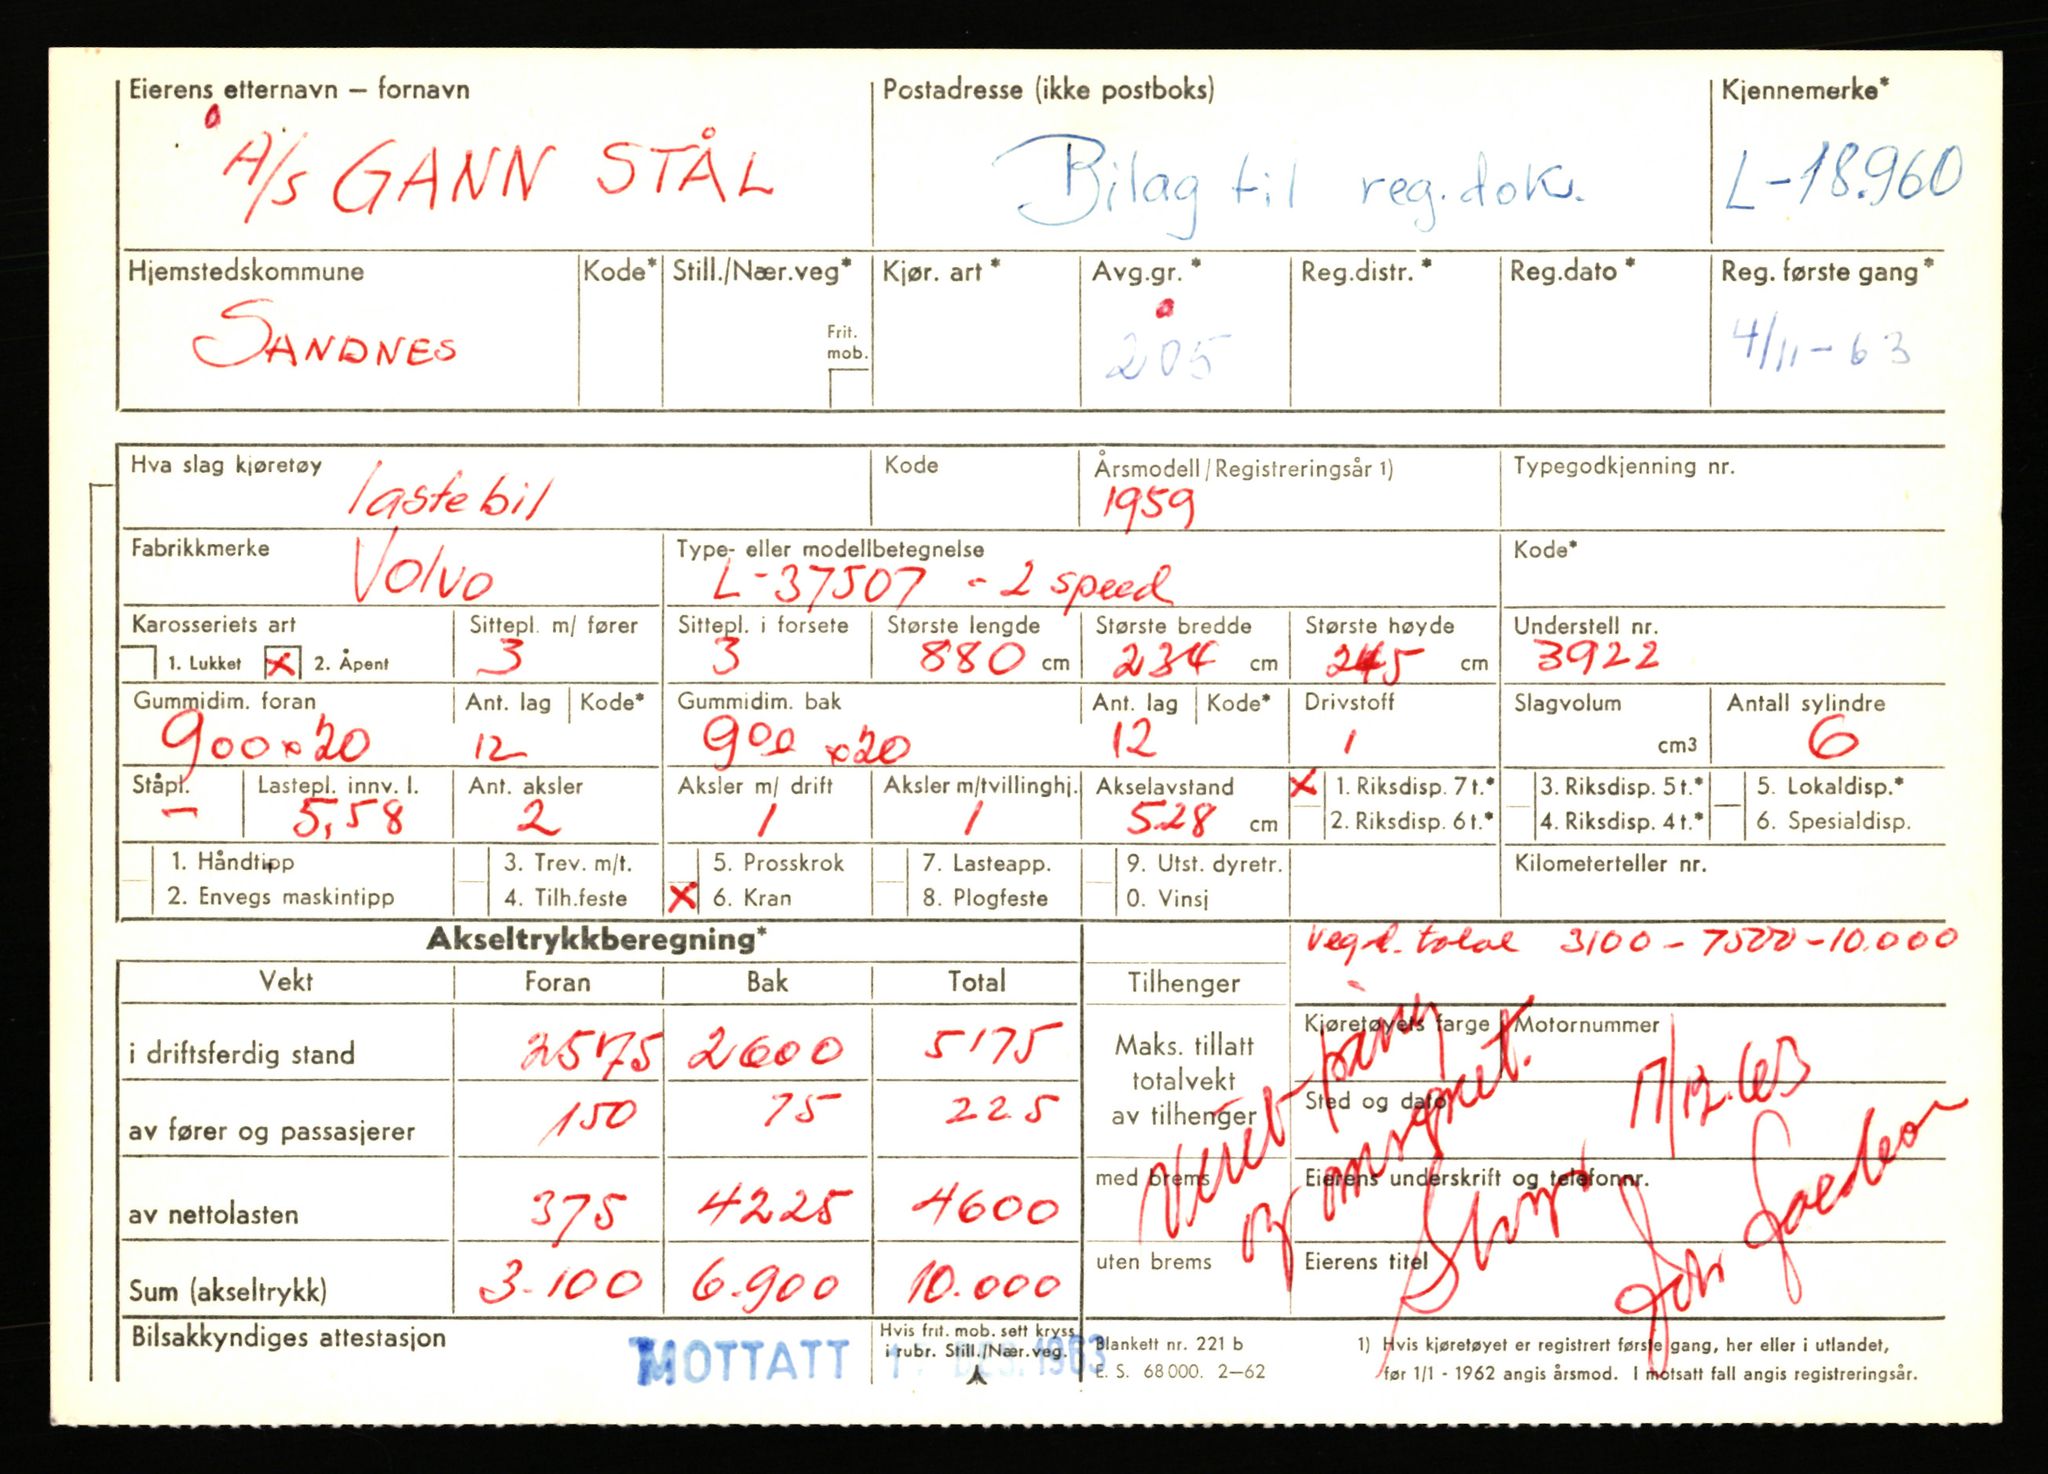 Eierens etternavn – fornavn Postadresse (ikke postboks) Kjennemerke*
A/S GANN STÅL Bilag til reg.dok. L-18.960
Hjemstedskommune Kode* Still./Nær.veg* Kjør. art * Avg.gr. * Reg.distr. * Reg.dato * Reg. første gang*
SANDNES Frit. mob. 205 4/11-63
Hva slag kjøretøy Kode Årsmodell/Registreringsår 1) Typegodkjenning nr.
lastebil 1959
Fabrikkmerke Type- eller modellbetegnelse Kode*
Volvo L-37507 - 2 speed
Karosseriets art Sittepl. m/ fører Sittepl. i forsete Største lengde Største bredde Største høyde Understell nr.
1. Lukket x 2. Åpent 3 3 880 cm 234 cm 245 cm 3922
Gummidim. foran Ant. lag Kode* Gummidim. bak Ant. lag Kode* Drivstoff Slagvolum Antall sylindre
900x20 12 900x20 12 1 cm3 6
Ståpl. Lastepl. innv. l. Ant. aksler Aksler m/ drift Aksler m/tvillinghj. Akselavstand x 1. Riksdisp. 7 t.* 3. Riksdisp. 5 t.* 5. Lokaldisp.*
– 5,58 2 1 1 528 cm 2. Riksdisp. 6 t.* 4. Riksdisp. 4 t.* 6. Spesialdisp.
1. Håndtipp 3. Trev. m/t. 5. Prosskrok 7. Lasteapp. 9. Utst. dyretr. Kilometerteller nr.
2. Envegs maskintipp 4. Tilh.feste x 6. Kran 8. Plogfeste 0. Vinsj
Akseltrykkberegning* Vegl. total 3100 - 7500 - 10.000
Vekt Foran Bak Total Tilhenger
Kjøretøyets farge Motornummer
i driftsferdig stand 2575 2600 5175 Maks. tillatt totalvekt av tilhenger
Sted og dato 17/12.63
av fører og passasjerer 150 75 225
av nettolasten 375 4225 4600 med brems Eierens underskrift og telefonnr.
Sum (akseltrykk) 3.100 6.900 10.000 uten brems Eierens titel
Veiet
og
Bilsakkyndiges attestasjon MOTTATT DES. 1963 Hvis frit. mob. sett kryss i rubr. Still./Nær.veg. Blankett nr. 221 b 1) Hvis kjøretøyet er registrert første gang, her eller i utlandet,
E. S. 68 000. 2–62 før 1/1 - 1962 angis årsmod. I motsatt fall angis registreringsår.